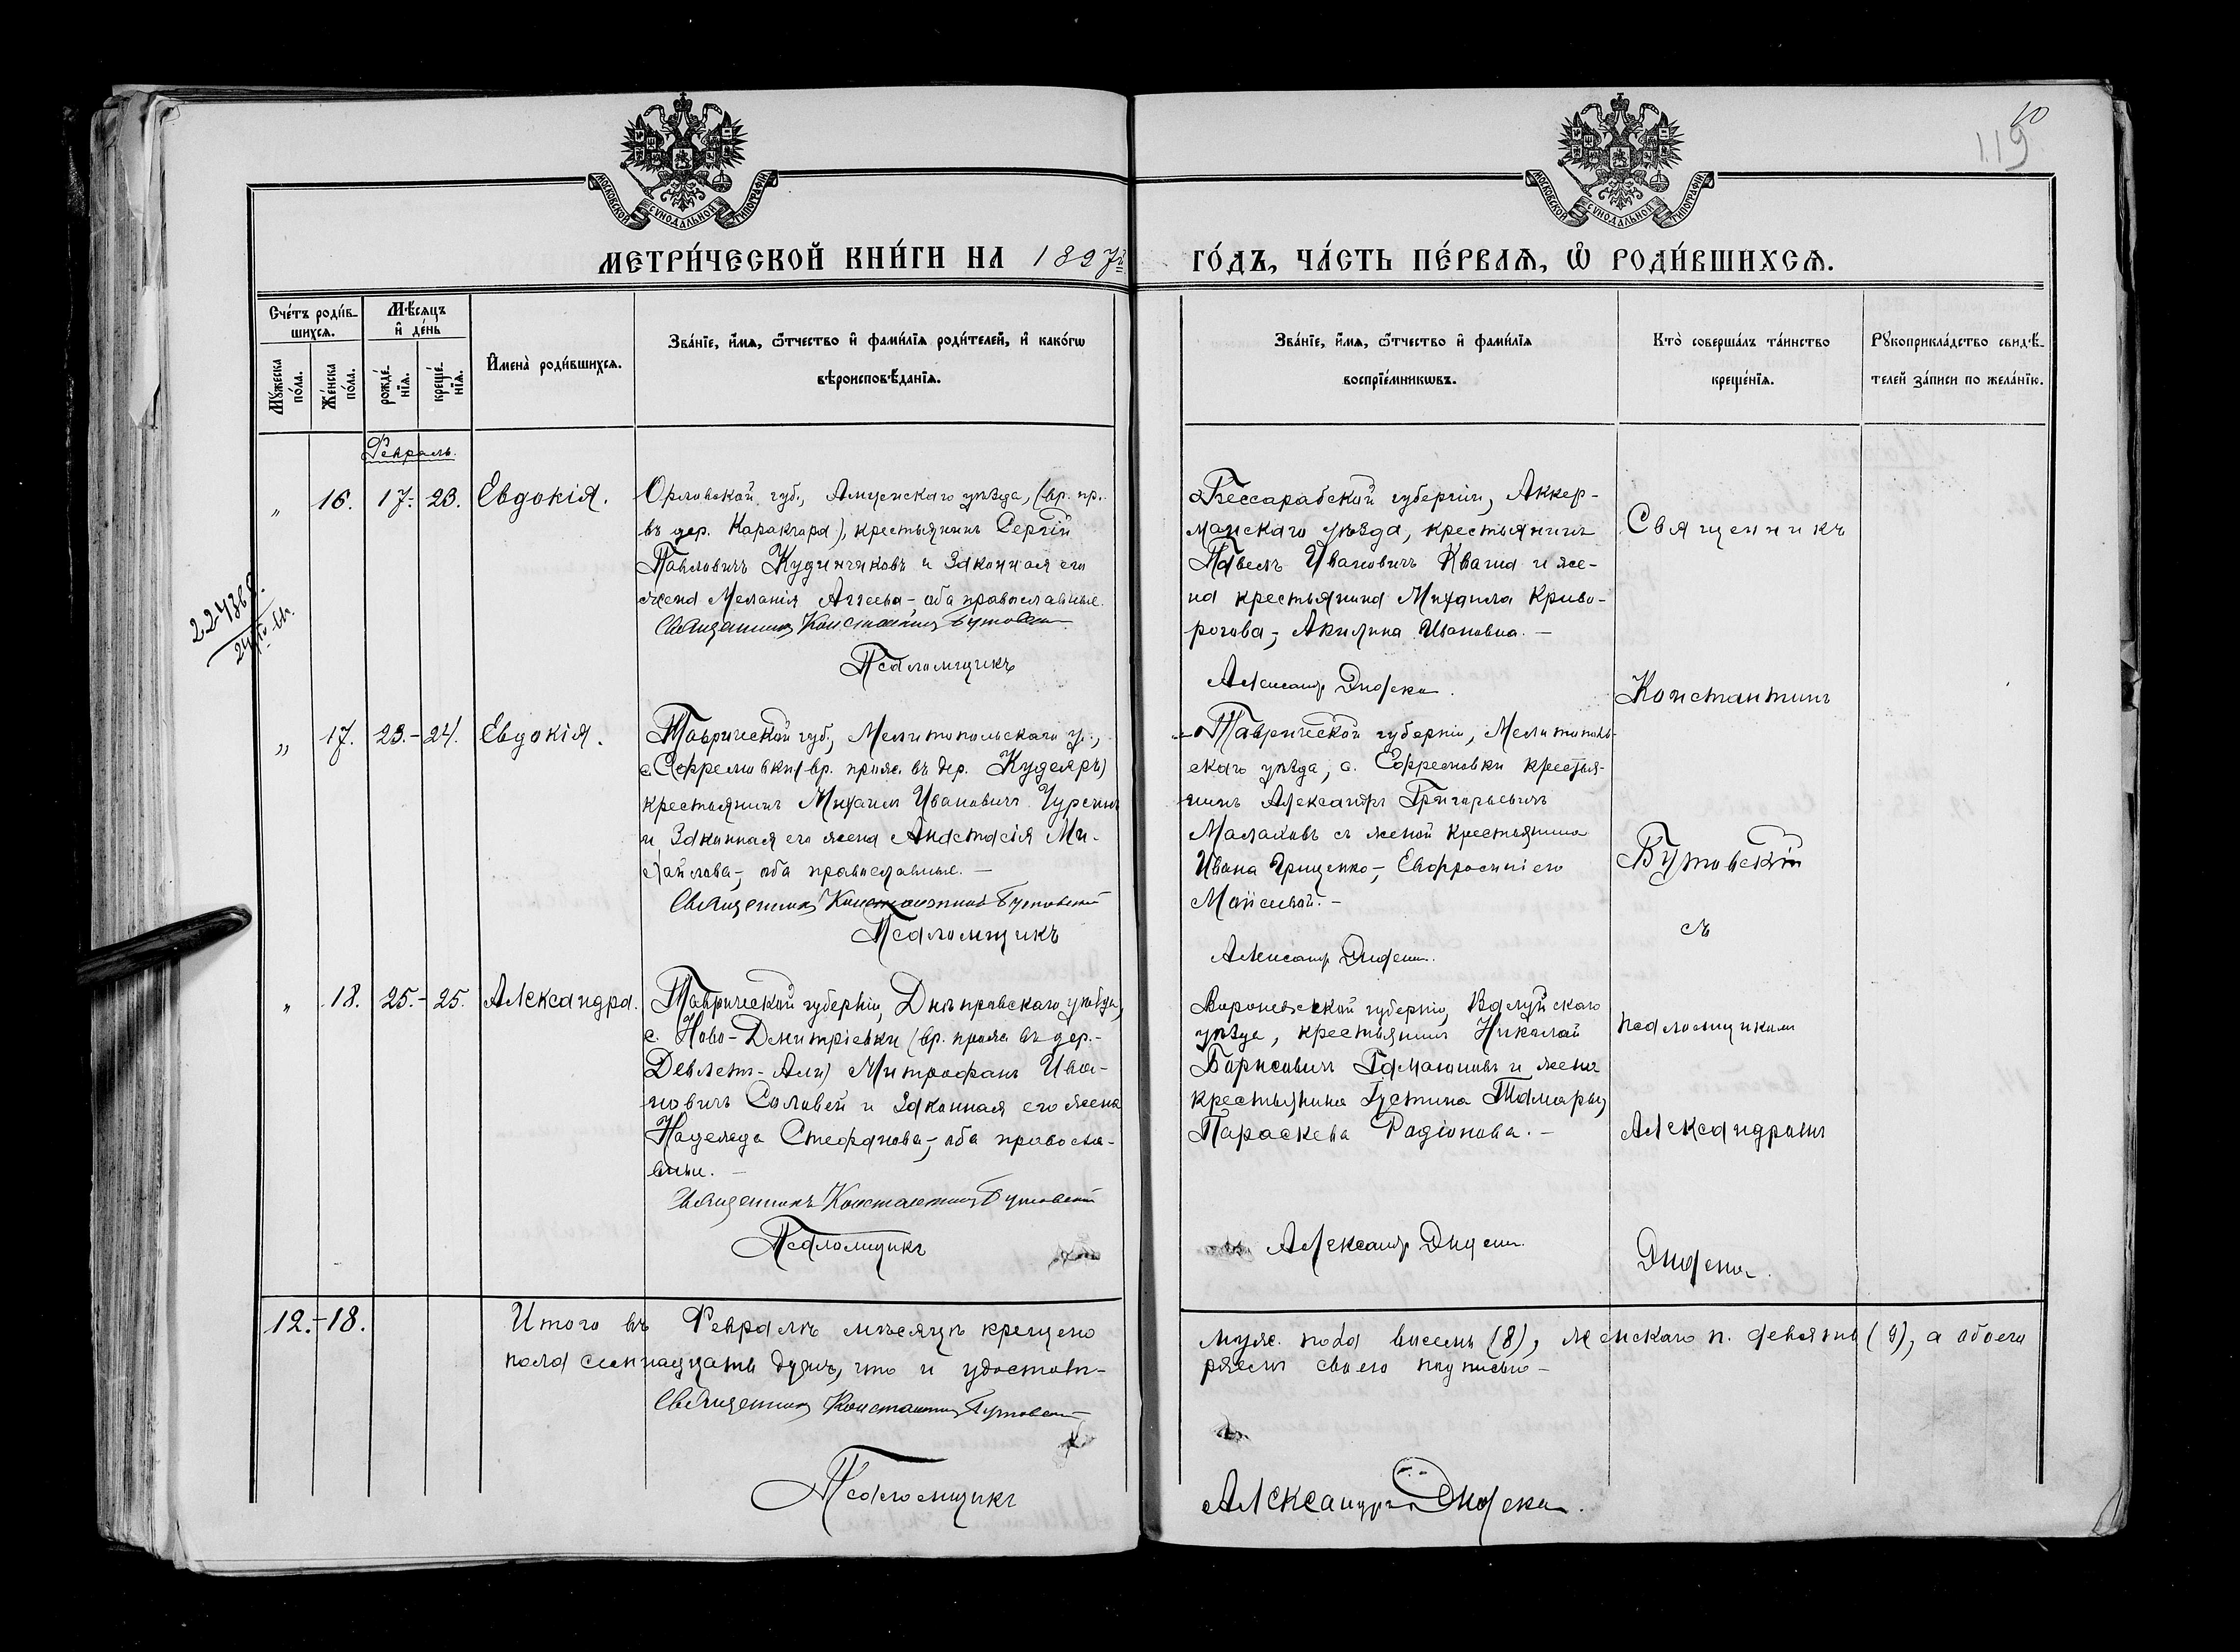 10
119
МОСКОВСКОЙ СѴНОДАЛЬНОЙ ТИПОГРАФІИ
МОСКОВСКОЙ СѴНОДАЛЬНОЙ ТИПОГРАФІИ
МЕТРИ́ЧЕСКОЙ КНИ́ГИ НА 1897й
ГО́ДЪ, ЧА́СТЬ ПЕ́РВАѦ, Ѽ РОДИ́ВШИХСѦ.
Сче́тъ роди́в-
шихсѧ.
Мꙋ́жеска по́ла.
Же́нска по́ла.
Мѣ́сѧцъ
и҆ де́нь
рожде́-
нїѧ.
креще́-
нїѧ.
И҆мена̀ роди́вшихсѧ.
Зва́нїе, и҆́мѧ, ѻ҆́тчество и҆ фами́лїѧ роди́телей, и҆ како́гѡ
вѣроисповѣ́данїѧ.
Зва́нїе, и҆́мѧ, ѻ҆́тчество и҆ фами́лїѧ
воспрїе́мникѡвъ.
Кто̀ соверша́лъ та́инство
креще́нїѧ.
Рꙋкоприкла́дство свидѣ́-
телей за́писи по жела́нїю.
Февраль.
„ 16. 17.- 23. Евдокія.
Орловской губ., Амценскаго уѣзда, (вр. пр.
въ дер. Каракчора), крестьянинъ Сергій
Павловичъ Кудинчиковъ и законная его
жена Меланія Аггеева-, оба православные.
Священникъ Константинъ Бутовскій
Псаломщикъ
Бессарабской губерніи, Аккер-
манскаго уѣзда, крестьянинъ
Павелъ Ивановичъ Кваша и же-
на крестьянина Михаила Криво-
рогова-, Акилина Ивановна. -
Александръ
Священникъ
Константинъ
„ 17. 23.- 24. Евдокія.
Таврической губ., Мелитопольскаго у.,
с. Ефремовки (вр. прож. въ дер. Кудеяръ)
крестьянинъ Михаилъ Ивановичъ Чуринъ
и законная его жена Анастасія Ми-
хайлова-, оба православные. -
Священникъ Константинъ Бутовскій
Псаломщикъ
Таврической губерніи, Мелитополь-
скаго уѣзда, с. Ефремовки крестья-
нинъ Александръ Григорьевичъ
Малаховъ съ женой крестьянина
Ивана Грищенко-, Евфросиніею
Моисеевой. -
Александръ
Бутовскій
съ
„ 18. 25.- 25. Александра.
Таврической губерніи, Днѣпровскаго уѣзда,
с. Ново-Дмитріевки (вр. прож. въ дер.-
Девлетъ-Али) Митрофанъ Ива-
новичъ Соловей и законная его жена
Надежда Стефанова-, оба православ-
вные. -
Священникъ Константинъ Бутовскій
Псаломщикъ
Воронежской губерніи, Валуйскаго
уѣзда, крестьянинъ Николай
Борисовичъ и жена
крестьянина Густина
Параскева Родіонова. -
Александръ
псаломщикомъ
Александромъ
12.-18. Итого въ Февралѣ мѣсяцѣ крещено
муж. пола восемь (8), женскаго п. девять (9), а обоего
пола семнадцать душъ, что и удостовѣ-
ряемъ своею подписью-
Священникъ Константинъ Бутовскій
Псаломщикъ
Александръ